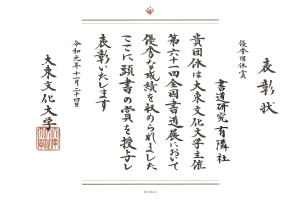 表彰状
優秀団体賞
書道研究有隣社
貴団体は大東文化大学主催
第六十一回全国書道展において
優秀な成績を収められました
ここに頭書の賞を授与し
表彰いたします
令和元年十一月二十四日
大東文化大学